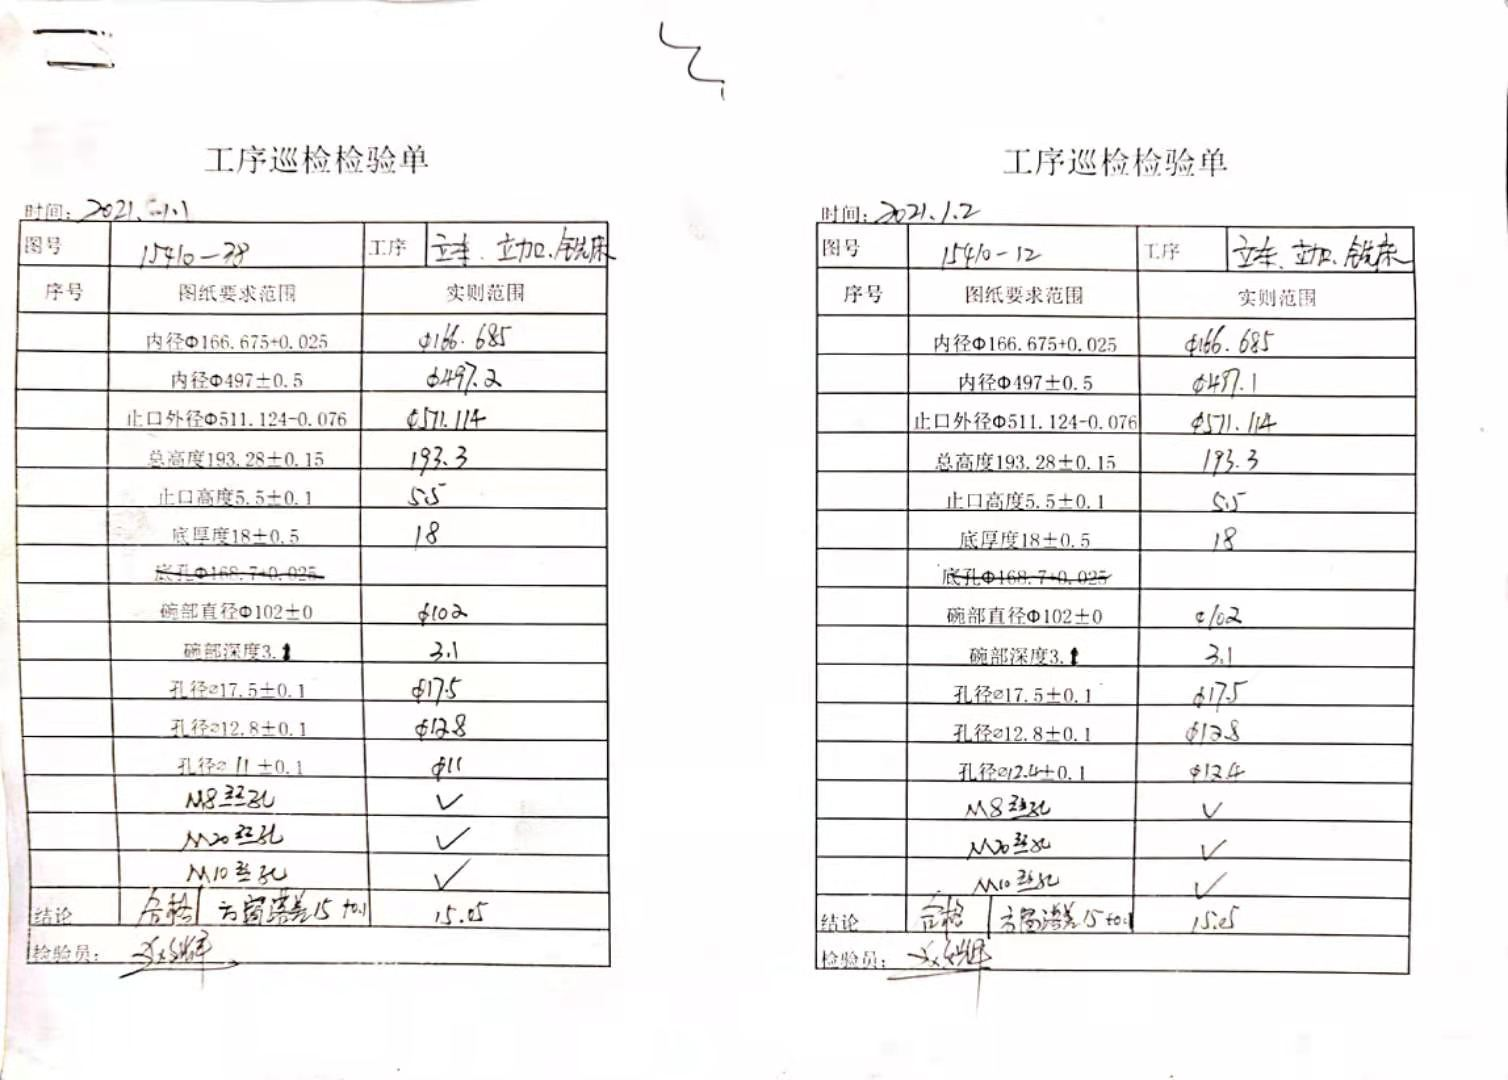 工序巡检检验单
时间: 2021.1.1
图号 15410-38 工序 立车、立加、铣床
序号 图纸要求范围 实则范围
内径Φ166.675+0.025 ϕ166.685
内径Φ497±0.5 ϕ497.2
止口外径Φ511.124-0.076 ϕ571.114
总高度193.28±0.15 193.3
止口高度5.5±0.1 5.5
底厚度18±0.5 18
底孔Φ168.7+0.025
碗部直径Φ102±0 ϕ102
碗部深度3.1 3.1
孔径∅17.5±0.1 ϕ17.5
孔径∅12.8±0.1 ϕ12.8
孔径∅11±0.1 ϕ11
M8丝孔 ✓
M20丝孔 ✓
M10丝孔 ✓
结论 合格 方窗落差15+0.1 15.05
检验员:
工序巡检检验单
时间: 2021.1.2
图号 15410-12 工序 立车、立加、铣床
序号 图纸要求范围 实则范围
内径Φ166.675+0.025 ϕ166.685
内径Φ497±0.5 ϕ497.1
止口外径Φ511.124-0.076 ϕ571.114
总高度193.28±0.15 193.3
止口高度5.5±0.1 5.5
底厚度18±0.5 18
底孔Φ168.7+0.025
碗部直径Φ102±0 ϕ102
碗部深度3.1 3.1
孔径∅17.5±0.1 ϕ17.5
孔径∅12.8±0.1 ϕ12.8
孔径∅12.4±0.1 ϕ12.4
M8丝孔 ✓
M20丝孔 ✓
M10丝孔 ✓
结论 合格 方窗落差15+0.1 15.05
检验员: